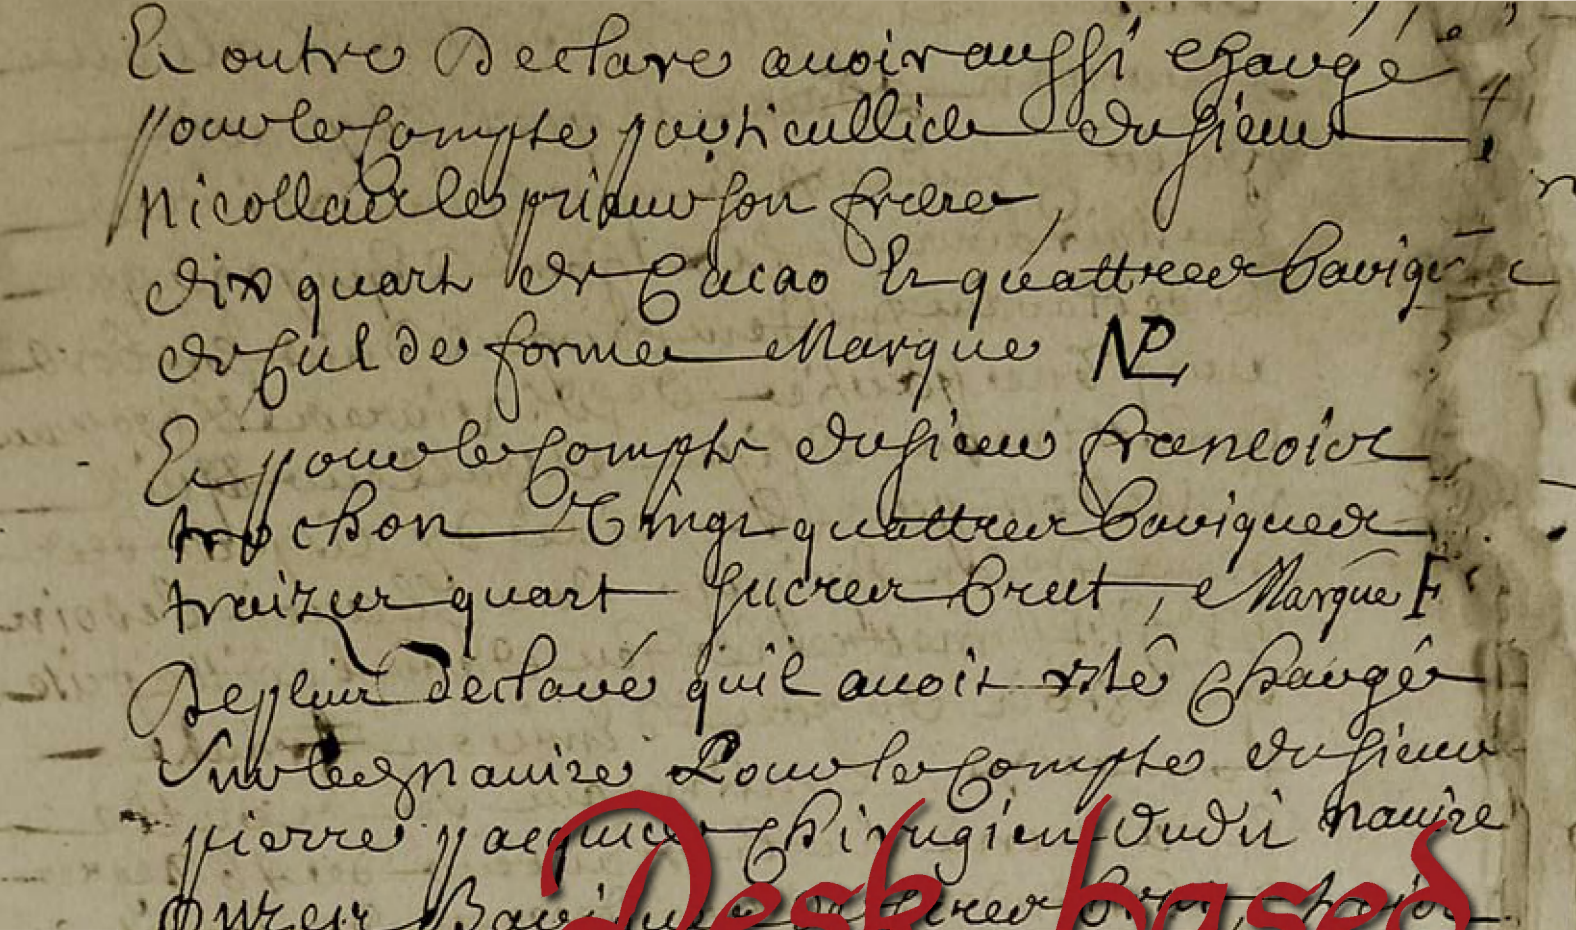 Et outre Declare avoir aussi chargé
pour le Compte particullier du sieur
Nicollas le prieur son frere,
dix quart de Cacao Et quattre bariques
de Cul de forme Marque NPL
Et pour le Compte du sieur francois
trochon Vingt quattre bariques
traize quart sucre brut, Marque F
De plus declaré quil avoit esté Chargé
Sur led navire Pour le Compte du sieur
pierre Chirugien dudit navire
onze Bariques sucre brut,
Desk based